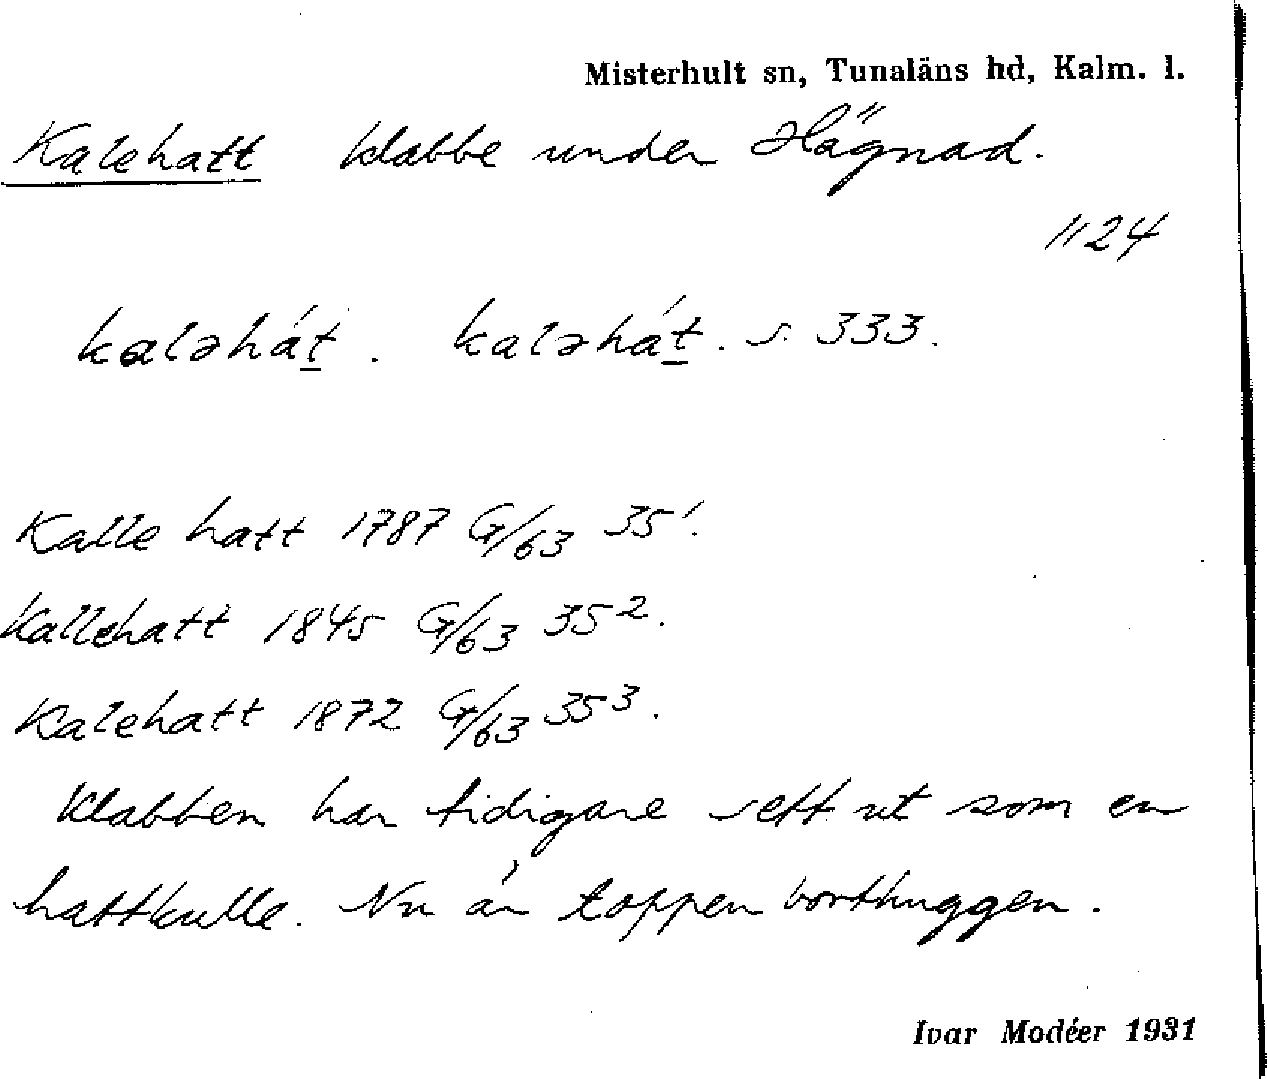 Misterhult sn, Tunaläns hd, Kalm. l.
Kalehatt klabbe under Hägnad.
"24
kaləhát̲. kaləhát̲. s. 333.
Kalle hatt 1787 G/63 35¹.
Kallehatt 1845 G/63 35².
Kalehatt 1872 G/63 35³.
Klabben har tidigare sett ut som en
hattkulle. Nu är toppen borthuggen.
Ivar Modéer 1931